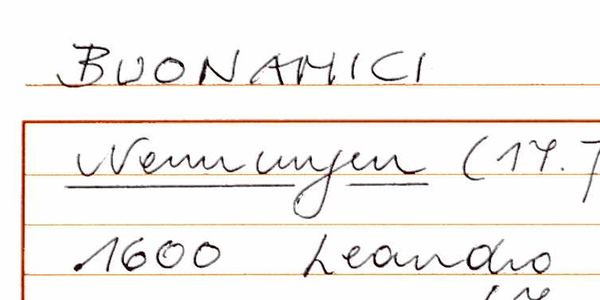 BUONAMICI
Nennungen (17.
1600 Leandro